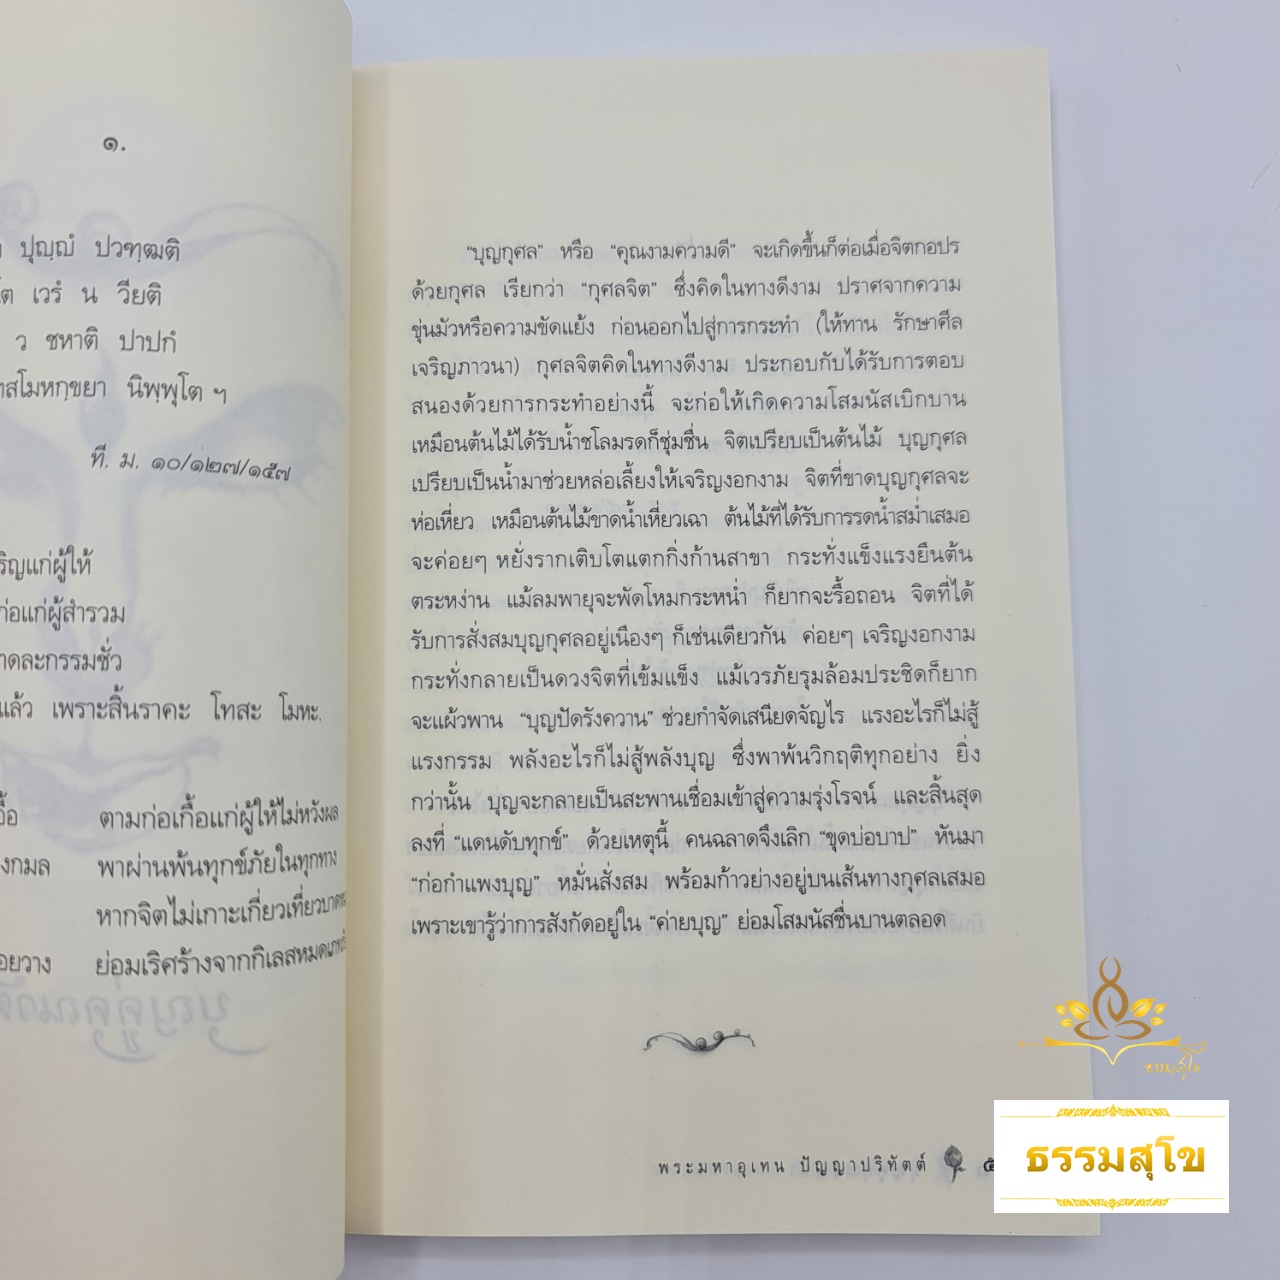 ๑.
ปุญฺญํ ปวฑฺฒติ
เวรํ น วียติ
ว ชหาติ ปาปกํ
นิพฺพุโต ฯ
ที. ม. ๑๐/๑๒๗/๑๕๗
แก่ผู้ให้
ก่อแก่ผู้สำรวม
ละกรรมชั่ว
แล้ว เพราะสิ้นราคะ โทสะ โมหะ.
ตามก่อเกื้อแก่ผู้ให้ไม่หวังผล
พาผ่านพ้นทุกข์ภัยในทุกทาง
หากจิตไม่เกาะเกี่ยวเที่ยว
ย่อมเริศร้างจากกิเลสหมด
“บุญกุศล” หรือ “คุณงามความดี” จะเกิดขึ้นก็ต่อเมื่อจิตกอปร
ด้วยกุศล เรียกว่า “กุศลจิต” ซึ่งคิดในทางดีงาม ปราศจากความ
ขุ่นมัวหรือความขัดแย้ง ก่อนออกไปสู่การกระทำ (ให้ทาน รักษาศีล
เจริญภาวนา) กุศลจิตคิดในทางดีงาม ประกอบกับได้รับการตอบ
สนองด้วยการกระทำอย่างนี้ จะก่อให้เกิดความโสมนัสเบิกบาน
เหมือนต้นไม้ได้รับน้ำชโลมรดก็ชุ่มชื่น จิตเปรียบเป็นต้นไม้ บุญกุศล
เปรียบเป็นน้ำมาช่วยหล่อเลี้ยงให้เจริญงอกงาม จิตที่ขาดบุญกุศลจะ
ห่อเหี่ยว เหมือนต้นไม้ขาดน้ำเหี่ยวเฉา ต้นไม้ที่ได้รับการรดน้ำสม่ำเสมอ
จะค่อยๆ หยั่งรากเติบโตแตกกิ่งก้านสาขา กระทั่งแข็งแรงยืนต้น
ตระหง่าน แม้ลมพายุจะพัดโหมกระหน่ำ ก็ยากจะรื้อถอน จิตที่ได้
รับการสั่งสมบุญกุศลอยู่เนืองๆ ก็เช่นเดียวกัน ค่อยๆ เจริญงอกงาม
กระทั่งกลายเป็นดวงจิตที่เข้มแข็ง แม้เวรภัยรุมล้อมประชิดก็ยาก
จะแผ้วพาน “บุญปัดรังควาน” ช่วยกำจัดเสนียดจัญไร แรงอะไรก็ไม่สู้
แรงกรรม พลังอะไรก็ไม่สู้พลังบุญ ซึ่งพาพ้นวิกฤติทุกอย่าง ยิ่ง
กว่านั้น บุญจะกลายเป็นสะพานเชื่อมเข้าสู่ความรุ่งโรจน์ และสิ้นสุด
ลงที่ “แดนดับทุกข์” ด้วยเหตุนี้ คนฉลาดจึงเลิก “ขุดบ่อบาป” หันมา
“ก่อกำแพงบุญ” หมั่นสั่งสม พร้อมก้าวย่างอยู่บนเส้นทางกุศลเสมอ
เพราะเขารู้ว่าการสังกัดอยู่ใน “ค่ายบุญ” ย่อมโสมนัสชื่นบานตลอด
พระมหาอุเทน ปัญญาปริทัตต์
ธรรมสุโข
ธรรมสุโข